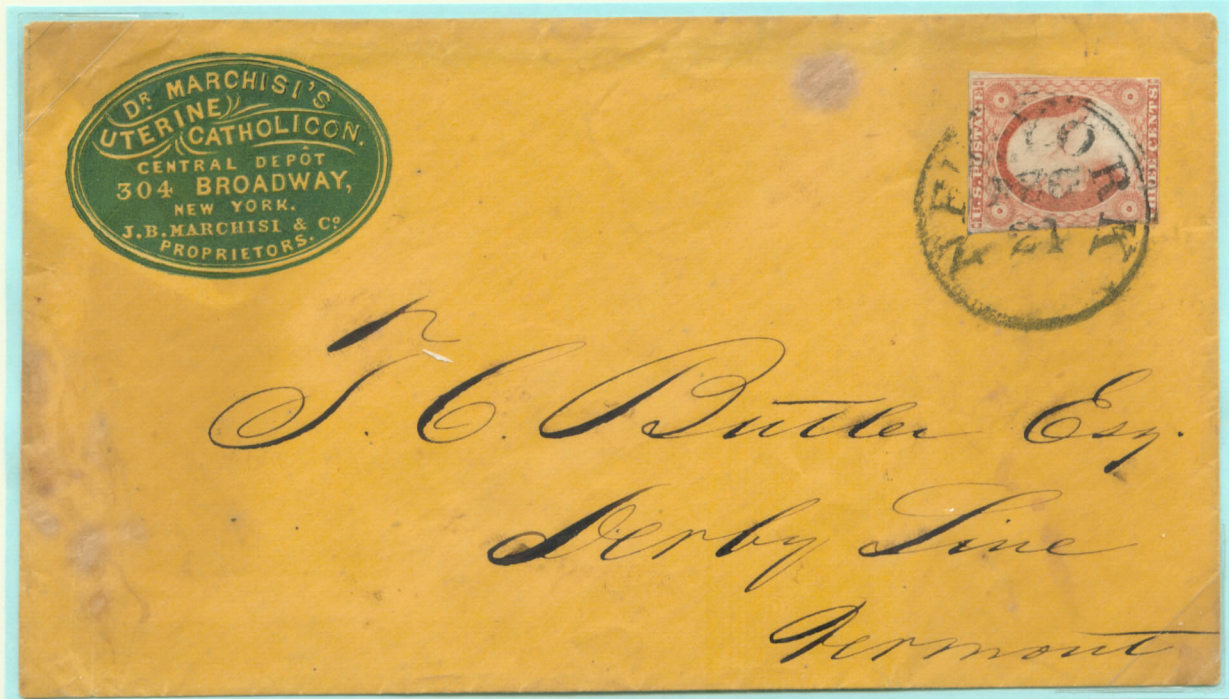 DR. MARCHISI'S
UTERINE
CATHOLICON.
CENTRAL DEPÔT
304 BROADWAY,
NEW YORK.
J.B. MARCHISI & Co
PROPRIETORS.
U.S. POSTAGE
THREE CENTS
NEW YORK
T. C. Butler Esq.
Derby Line
Vermont